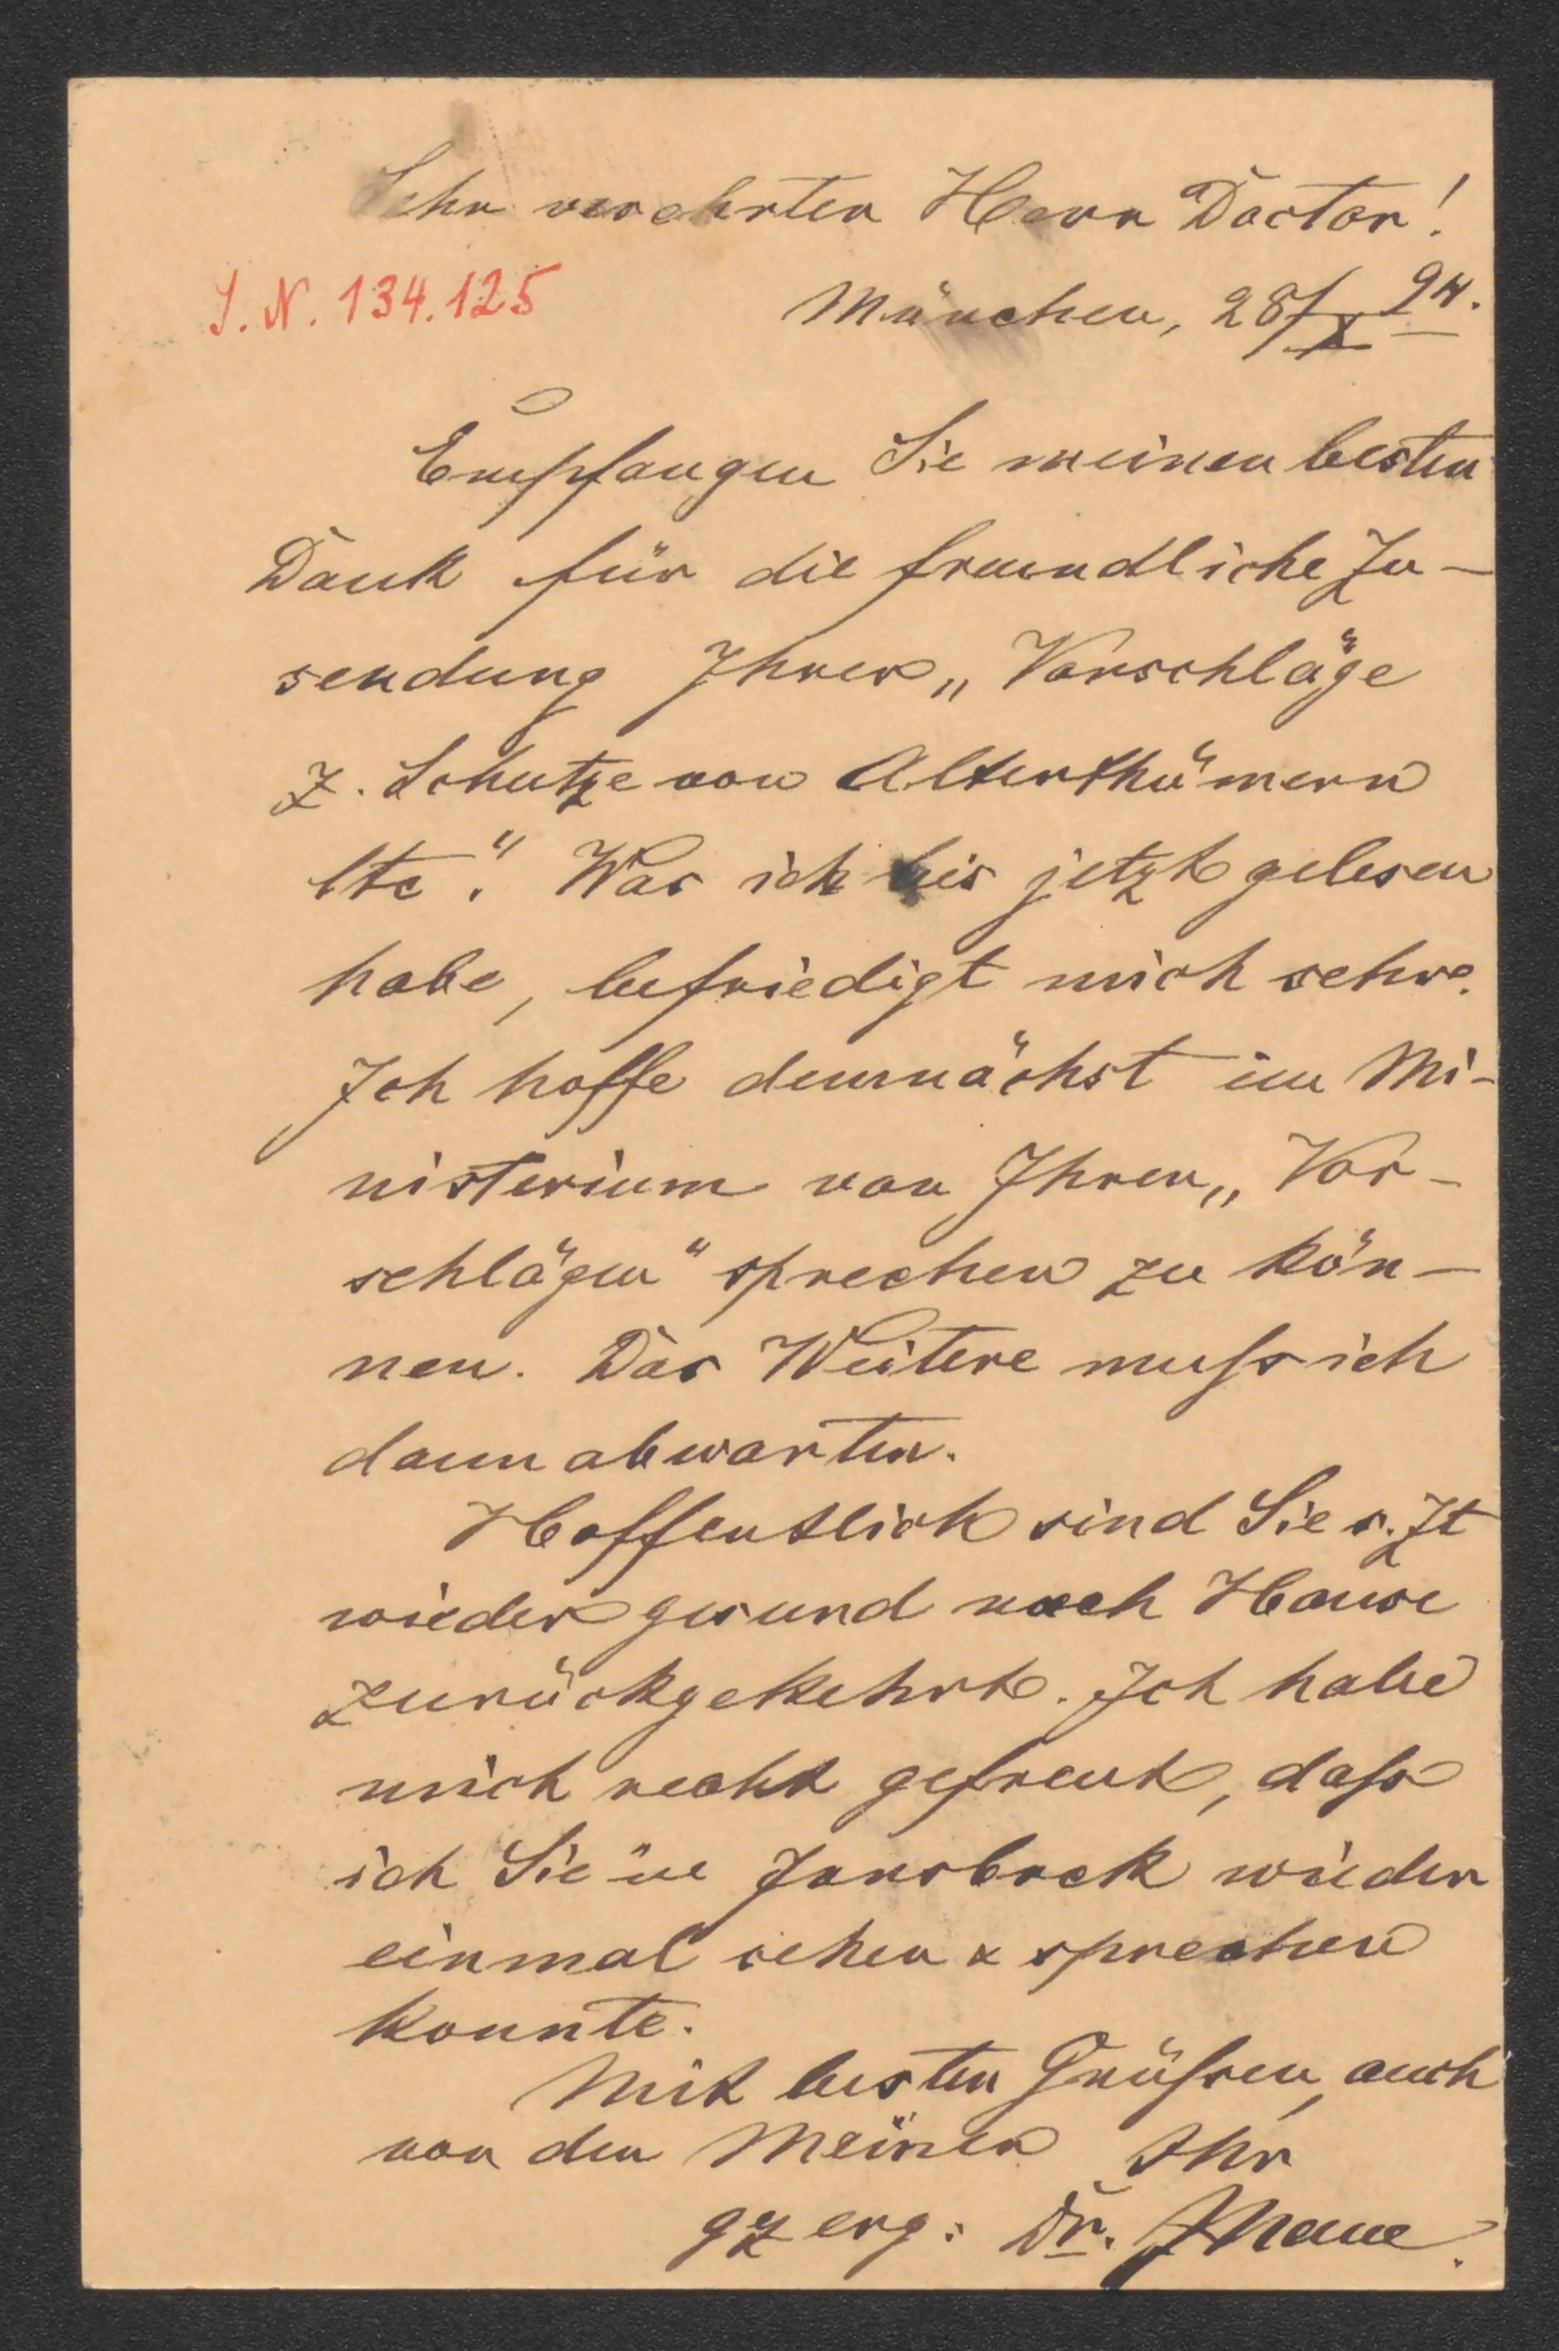 Sehr verehrter Herr Doctor!
J. N. 134.125
München, 28/X 94.
Empfangen Sie meinen besten
Dank für die freundliche Zu-
sendung Ihrer „Vorschläge
z. Schutze von Alterthümern
etc". Was ich bis jetzt gelesen
habe, befriedigt mich sehr.
Ich hoffe demnächst im Mi-
nisterium von Ihren „Vor-
schlägen" sprechen zu kön-
nen. Das Weitere muß ich
dann abwarten.
Hoffentlich sind Sie s. Zt
wieder gesund nach Hause
zurückgekehrt. Ich habe
mich recht gefreut, daß
ich Sie in Innsbruck wieder
einmal sehen & sprechen
konnte.
Mit besten Grüßen, auch
von den Meinen Ihr
gz erg. Dr. J Naue.